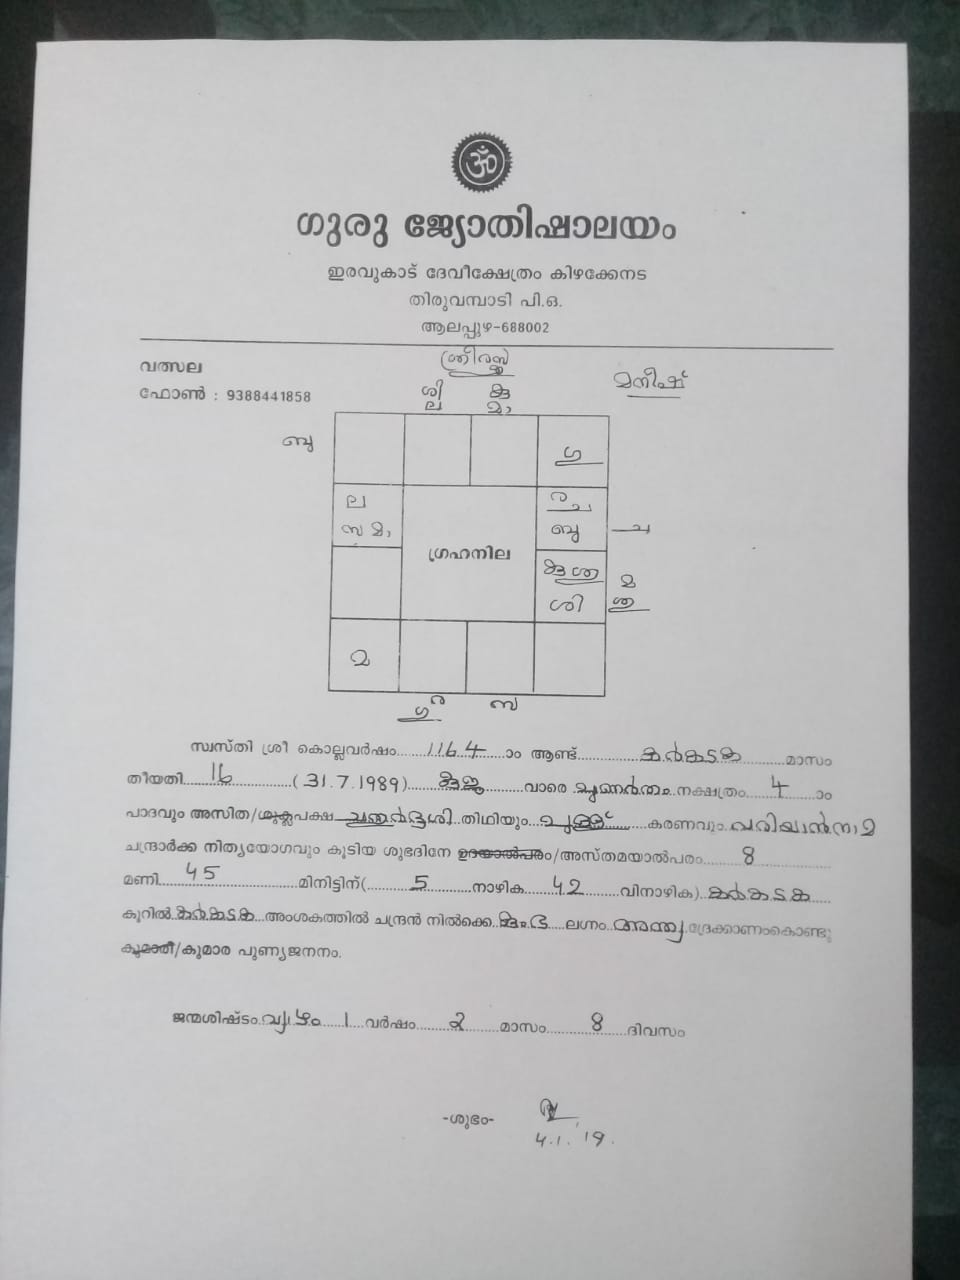 ॐ
ഗുരു ജ്യോതിഷാലയം
ഇരവുകാട് ദേവീക്ഷേത്രം കിഴക്കേനട
തിരുവമ്പാടി പി.ഒ.
ആലപ്പുഴ-688002
വത്സല
ഫോൺ : 9388441858
ശ്രീരസ്തു
മനീഷ്
ശി കു
ല മാ
ബു
ഗു
ല
സ മാ
ര ച
ബു
ച
ഗ്രഹനില
കു ശു
ശി
മ
ശു
മ
ര
ഗു
സ
സ്വസ്തി ശ്രീ കൊല്ലവർഷം 1164 ാം ആണ്ട് കർക്കടക മാസം
തീയതി 16 ( 31.7.1989 ) കുജ വാരെ പുണർതം നക്ഷത്രം 4 ാം
പാദവും അസിത/ശുക്ലപക്ഷ ചതുർദ്ദശി തിഥിയും പുള്ള് കരണവും വരിയാൻ നാമ
ചന്ദ്രാർക്ക നിത്യയോഗവും കൂടിയ ശുഭദിനേ ഉദയാൽപരം/അസ്തമയാൽപരം 8
മണി 45 മിനിട്ടിന് ( 5 നാഴിക 42 വിനാഴിക) കർക്കടക
കൂറിൽ കർക്കടക അംശകത്തിൽ ചന്ദ്രൻ നിൽക്കെ കുംഭ ലഗ്നം അന്ത്യ ദ്രേക്കാണംകൊണ്ടു
കുമത്തീ/കുമാര പുണ്യജനനം.
ജന്മശിഷ്ടം വ്യാഴം 1 വർഷം 2 മാസം 8 ദിവസം
-ശുഭം-
4.1.19.